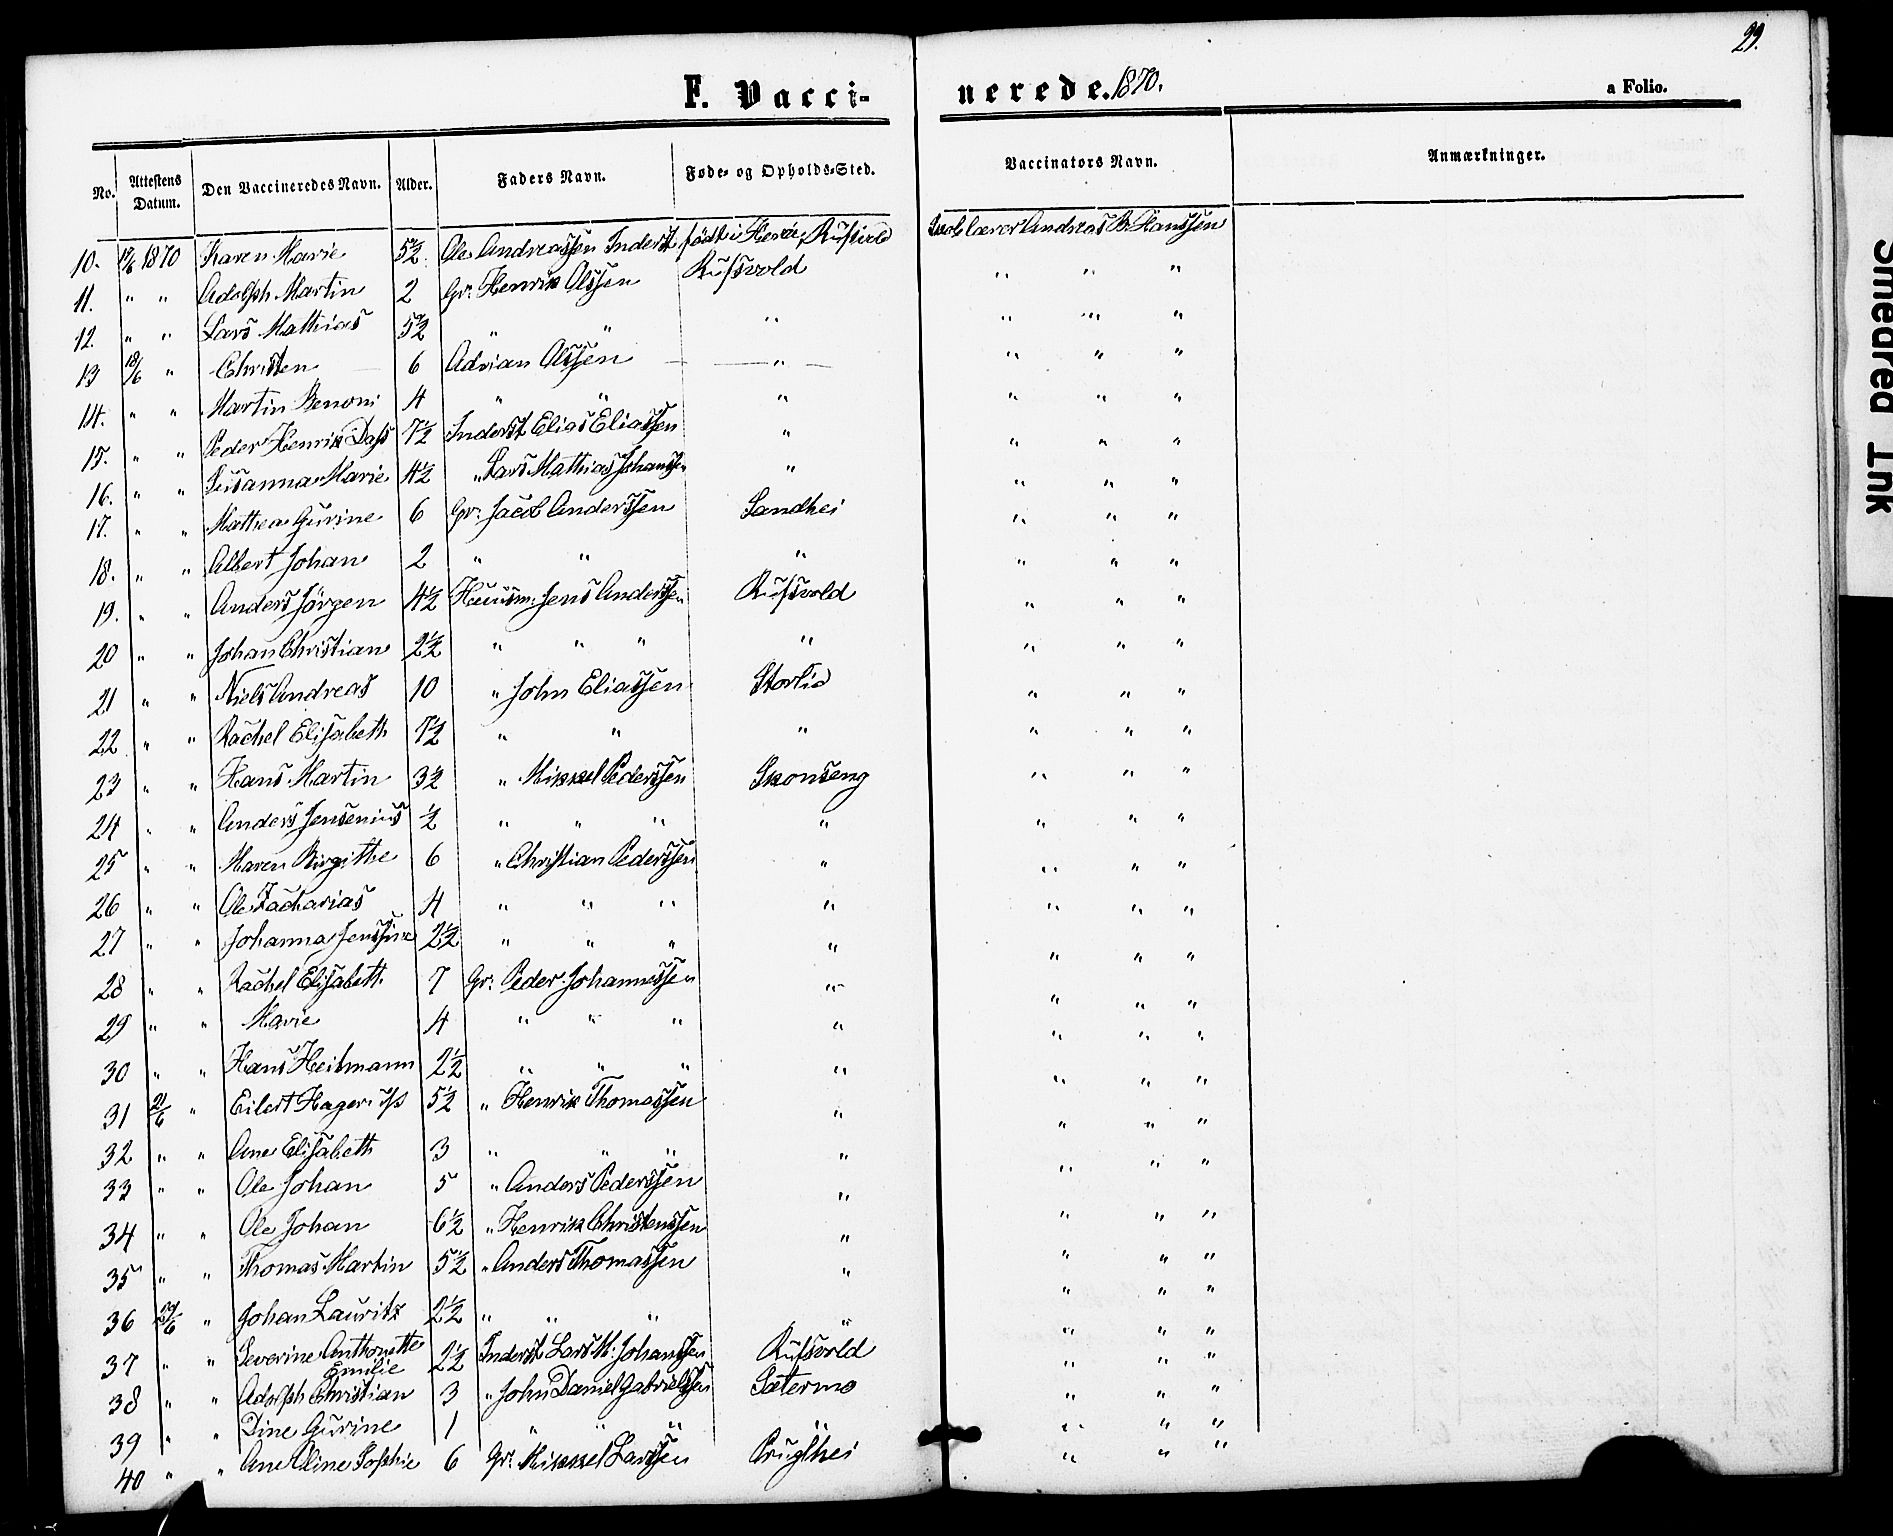 29.
F. Vacci- nerede. 1870. a Folio.
No. Attestens Datum. Den Vaccineredes Navn. Alder. Faders Navn. Føde- og Opholds-Sted. Vaccinators Navn. Anmærkninger.
10. 17/6 1870 Karen Marie 5½ Ole Andreassen Inderst født i Herrø, Rufsvold Skolelærer Andreas B. Hanssen
11. " " Adolph Martin 2 Gr. Henrik Olssen Rufsvold " " "
12. " " Lars Mathias 5½ " " " " " "
13 18/6 " Christen 6 Adrian Olssen " " " "
14. " " Martin Benoni 4 " " " " " "
15. " " Peder Henrik Dafs 7½ Inderst Elias Eliassen " " " "
16. " " Susanna Marie 4½ " Lars Mathias Johanssen " " " "
17. " " Mathea Gurine 6 Gr. Jacob Anderssen Sandhei " " "
18. " " Albert Johan 2 " " " " " "
19. " " Anders Jörgen 4½ Huusm. Jens Anderssen Rufsvold " " "
20 " " Johan Christian 2½ " " " " " " "
21 " " Niels Andreas 10 " John Eliassen Storlid " " "
22 " " Rachel Elisabeth 7½ " " " " " "
23 " " Hans Martin 3½ " Mikkel Pederssen Skonseng " " "
24 " " Anders Jensenius ½ " " " " " " "
25 " " Maren Birgithe 6 " Christian Pederssen " " " "
26 " " Ole Zacharias 4 " " " " " " "
27 " " Johanna Jenssine 2½ " " " " " " "
28 " " Rachel Elisabeth. 7 Gr. Peder Johannessen " " " "
29 " " Marie 4 " " " " " " "
30 " " Hans Heitmann 2½ " " " " " " "
31 21/6 " Eilert Hagerufs 5½ " Henrik Thomassen " " " "
32 " " Ane Elisabeth 3 " " " " " " "
33 " " Ole Johan 5 " Anders Pederssen " " " "
34 " " Ole Johan 6½ " Henrik Christenssen " " " "
35 " " Thomas Martin 5½ " Anders Thomassen " " " "
36 29/6 " Johan Lauritz 2½ " " " " " " "
37 " " Severine Anthonette Emilie 2½ Inderst Lars M. Johanssen Rufsvold " " "
38 " " Adolph Christian 3 " John Daniel Gabrielssen Sætermo " " "
39 " " Dine Gurine 1 " " " " " " "
40 " " Ane Oline Sophie 6 Gr. Mikkel Larssen Bruglhei " " "
Smeared Ink